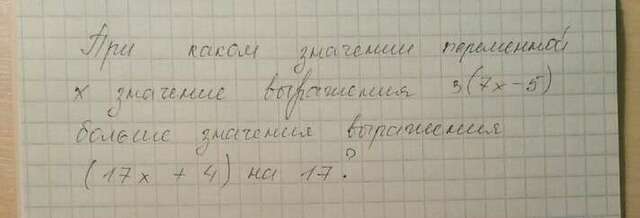 При каком значении переменной
х значение выражения 3(7х-5)
больше значения выражения
(17х + 4) на 17?